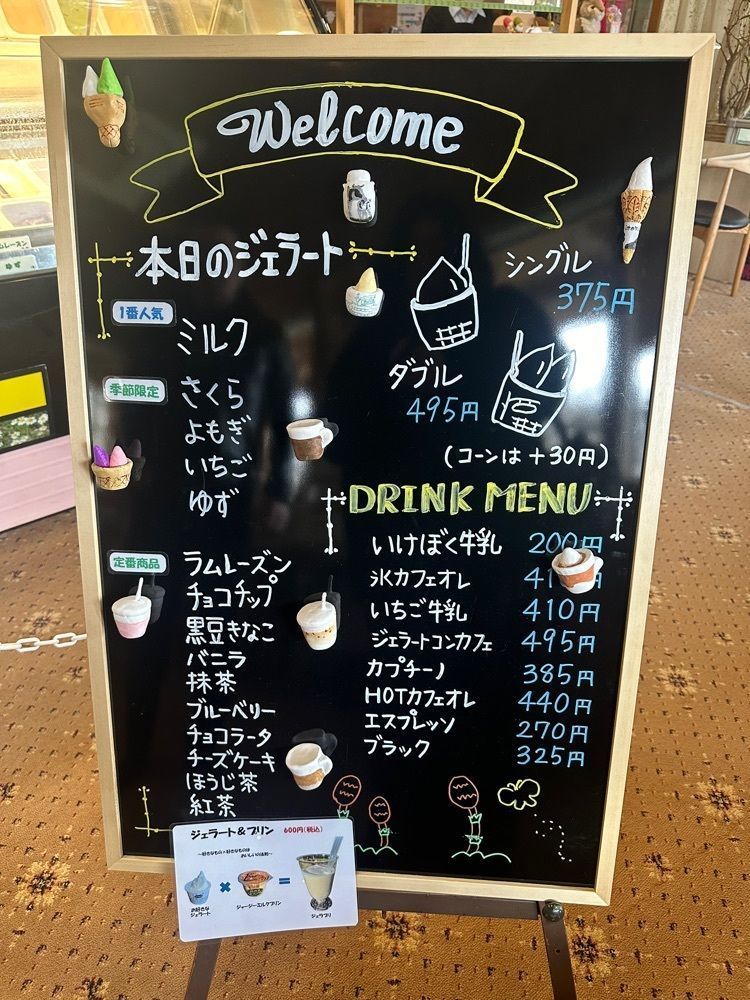 Welcome
本日のジェラート
1番人気
ミルク
季節限定
さくら
よもぎ
いちご
ゆず
定番商品
ラムレーズン
チョコチップ
黒豆きなこ
バニラ
抹茶
ブルーベリー
チョコラータ
チーズケーキ
ほうじ茶
紅茶
シングル
375円
ダブル
495円
(コーンは+30円)
DRINK MENU
いけぼく牛乳 200円
氷カフェオレ 41
いちご牛乳 410円
ジェラートコンカフェ 495円
カプチーノ 385円
HOTカフェオレ 440円
エスプレッソ 270円
ブラック 325円
ジェラート&プリン 600円(税込)
お好きな
ジェラート
×
ジャージーミルクプリン
=
ジェラプリ
ゆず